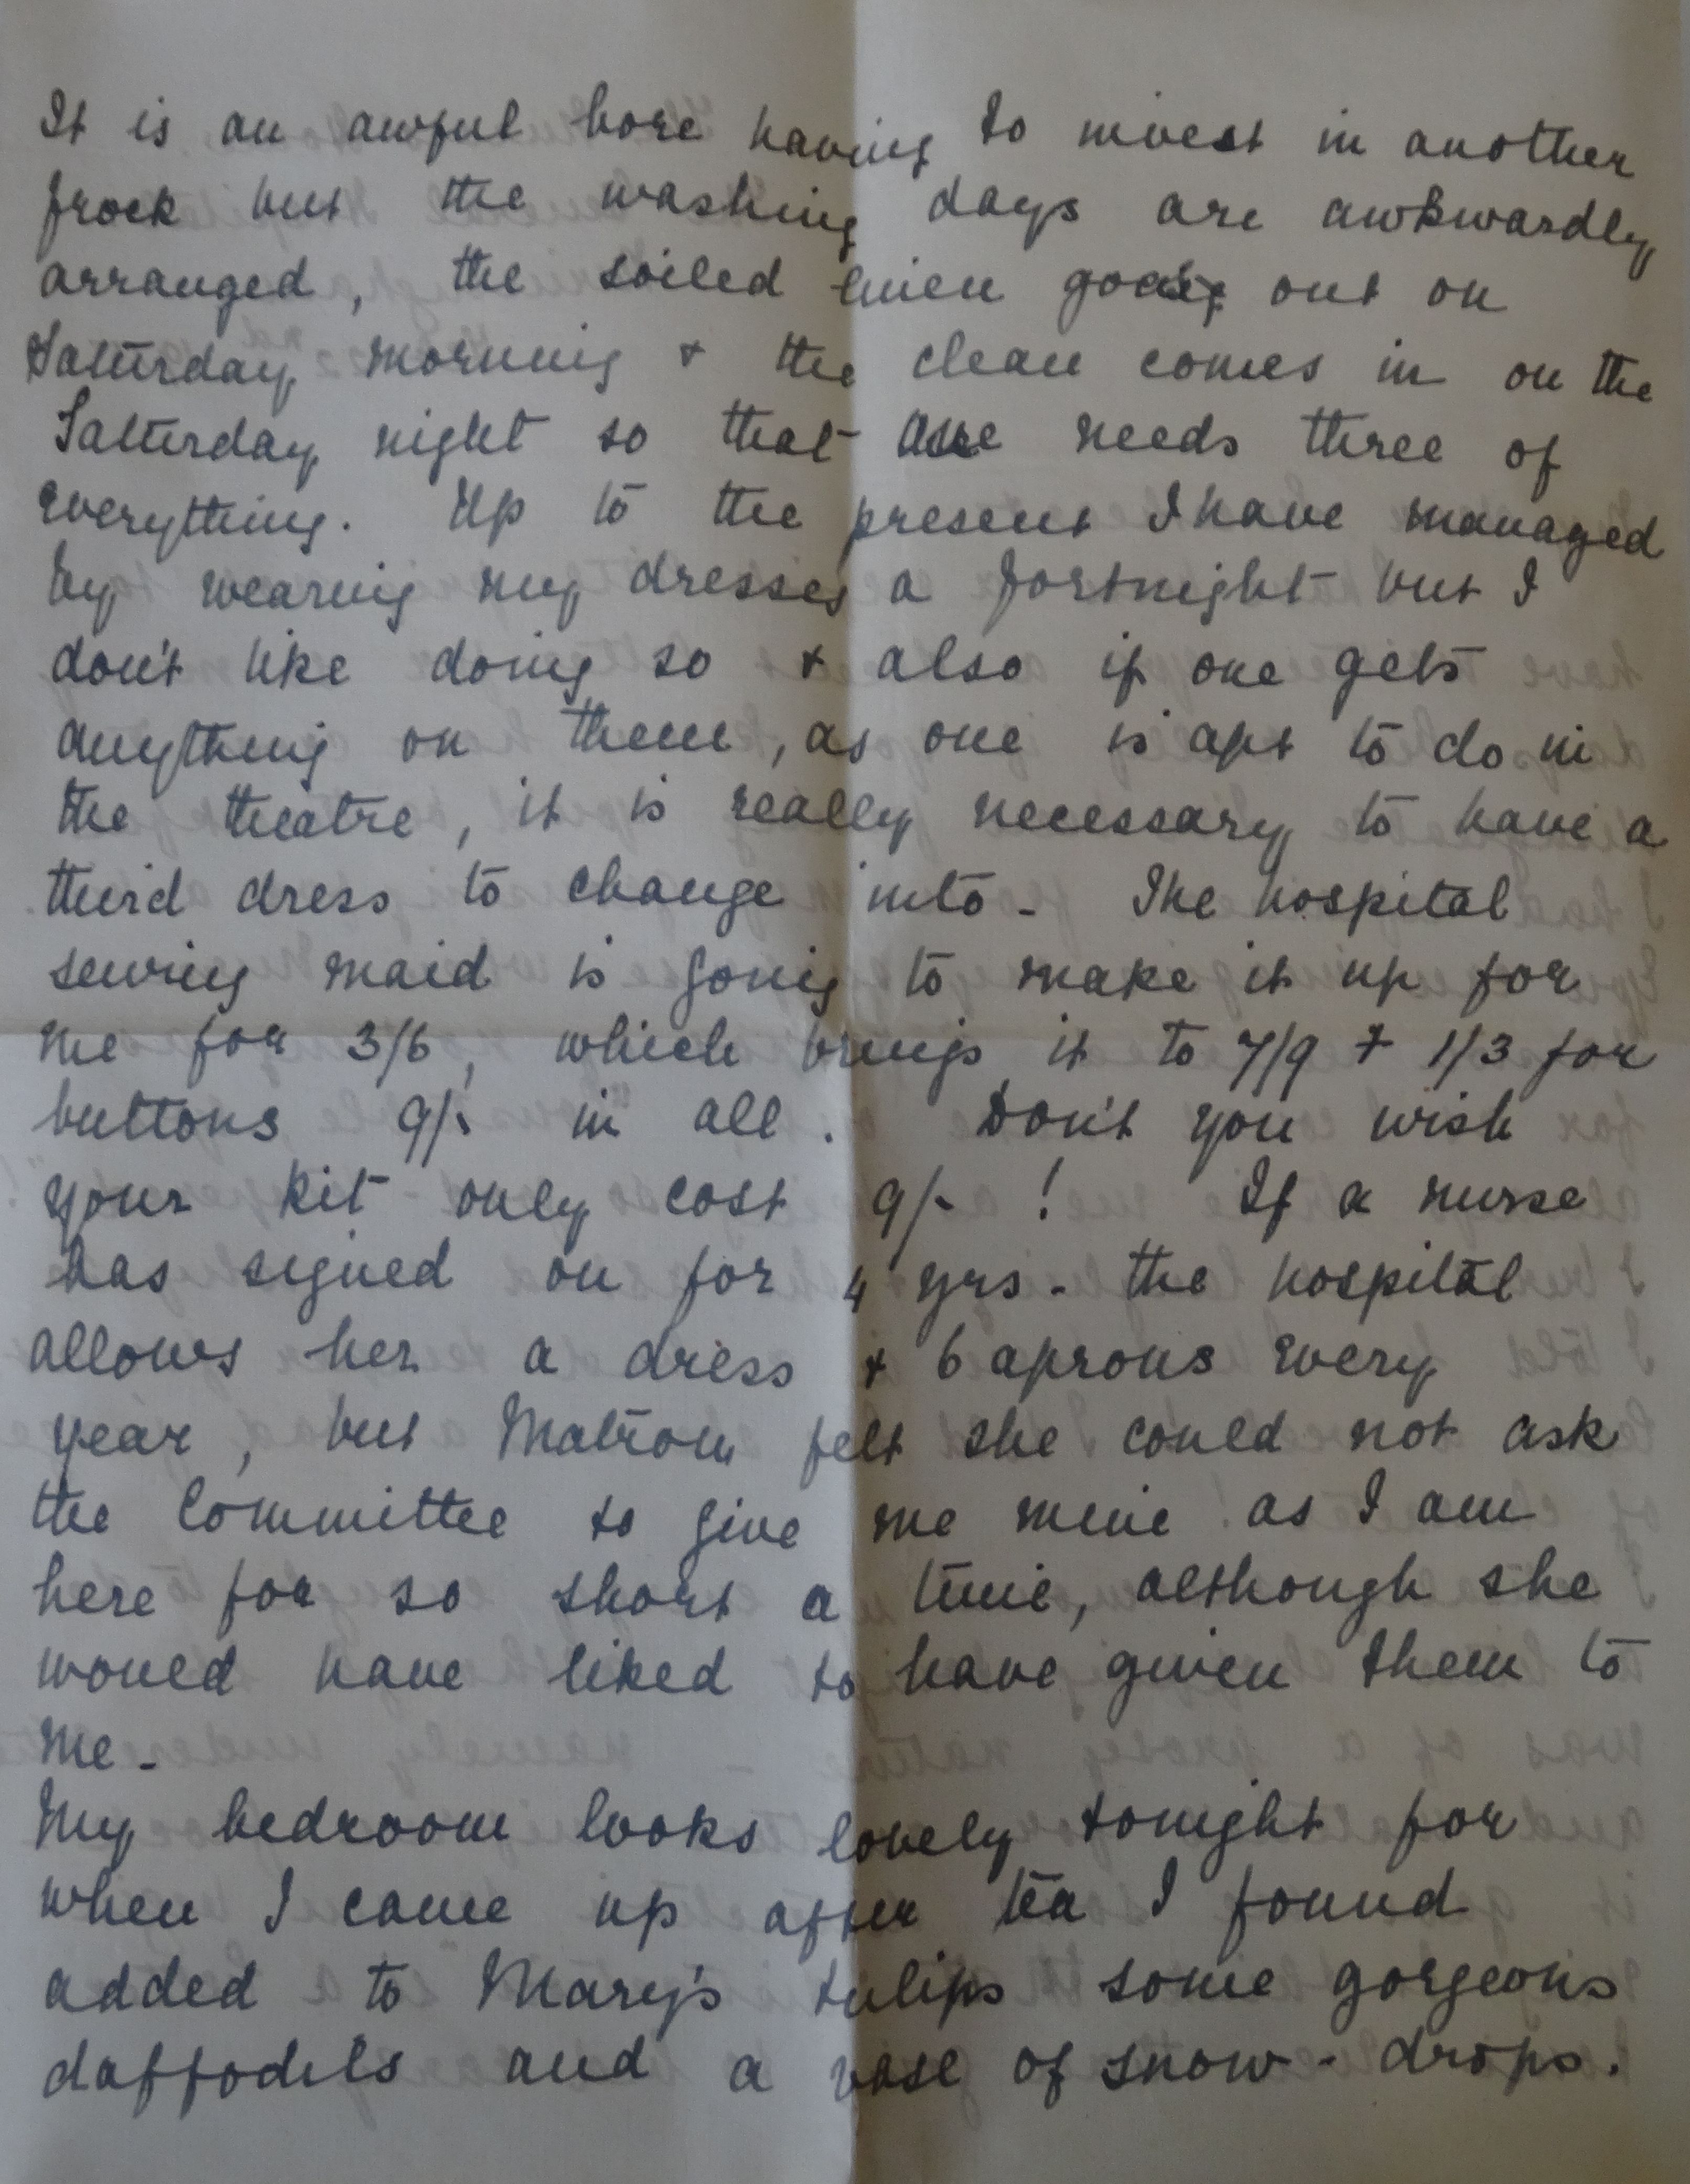 It is an awful bore having to invest in another
frock but the washing days are awkwardly
arranged, the soiled linen goes out on
Saturday morning & the clean comes in on the
Saturday night so that one needs three of
everything. Up to the present I have managed
by wearing my dresses a fortnight but I
don't like doing so & also if one gets
anything on them, as one is apt to do in
the theatre, it is really necessary to have a
third dress to change into - The hospital
sewing maid is going to make it up for
me for 3/6, which brings it to 7/9 + 1/3 for
buttons 9/- in all. Don't you wish
your kit only cost 9/- ! If a nurse
has signed on for 4 yrs - the hospital
allows her a dress & 6 aprons every
year, but Matron felt she could not ask
the Committee to give me mine as I am
here for so short a time, although she
would have liked to have given them to
me -
My bedroom looks lovely tonight for
when I came up after tea I found
added to Mary's tulips some gorgeous
daffodils and a vase of snow-drops.